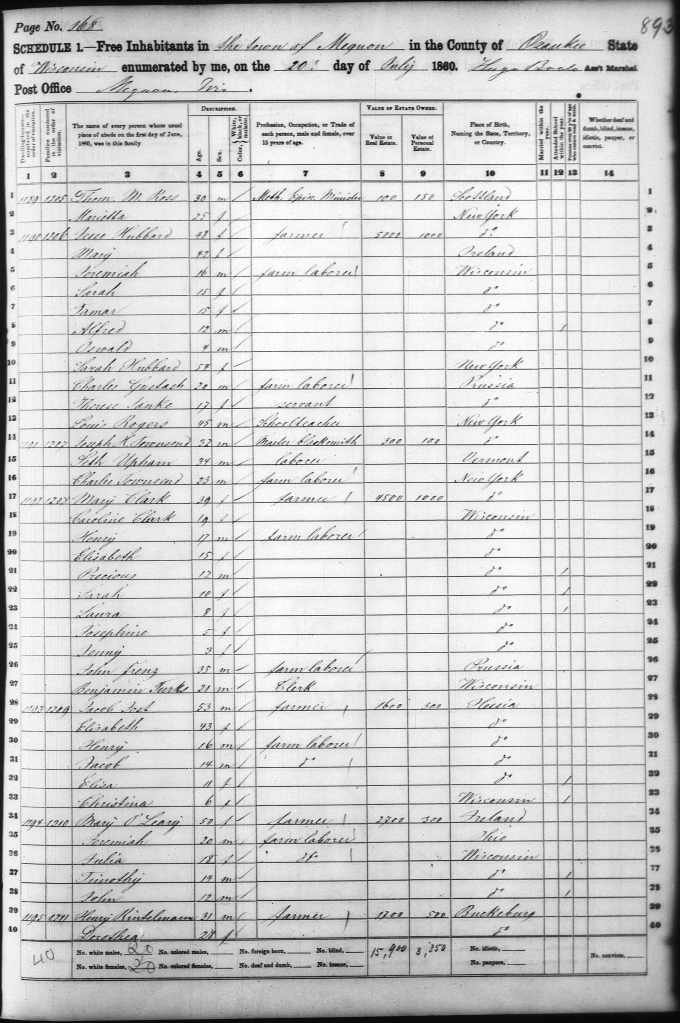 Page No. 168 893
SCHEDULE 1.—Free Inhabitants in the town of Mequon in the County of Ozaukee State
of Wisconsin enumerated by me, on the 20 day of July 1860. Ass't Marshal.
Post Office Mequon Wis.
DESCRIPTION. VALUE OF ESTATE OWNED.
The name of every person whose usual place of abode on the first day of June, 1860, was in this family. Age. Sex. Profession, Occupation, or Trade of each person, male and female, over 15 years of age. Value of Real Estate. Value of Personal Estate. Place of Birth, Naming the State, Territory, or Country. Married within the year. Attended School within the year. Whether deaf and dumb, blind, insane, idiotic, pauper, or convict.
1 2 3 4 5 6 7 8 9 10 11 12 13 14
1 1205 Thom. M Ross 30 m Meth. Epis. Minister 100 150 Scotland 1
2 Marietta 25 f New York 2
3 1206 Hubbard farmer 5000 1000 do 3
4 Mary 42 f Ireland 4
5 Jeremiah 16 m farm laborer Wisconsin 5
6 Sarah 15 f do 6
7 Tamar 15 f do 7
8 Alfred 12 m do 1 8
9 Oswald 4 m do 9
10 Sarah Hubbard f New York 10
11 Charles 20 m farm laborer Prussia 11
12 Therese 17 f servant do 12
13 Louis Rogers 45 m Schoolteacher New York 13
14 1207 Joseph Townsend m Master Blacksmith 300 100 do 14
15 Seth Upham 24 m laborer Vermont 15
16 Charles Townsend 23 m farm laborer New York 16
17 1208 Mary Clark 39 f farmer 4500 1000 do 17
18 Caroline Clark 19 f Wisconsin 18
19 Henry 17 m farm laborer do 19
20 Elizabeth 15 f do 20
21 Precious 12 m do 1 21
22 Sarah 10 f do 1 22
23 Laura 8 f do 1 23
24 Josephine 5 f do 24
25 Jenny 3 f do 25
26 John 35 m farm laborer Prussia 26
27 Benjamin Turks 20 m Clerk Wisconsin
28 1209 Jacob 53 m farmer 1600 300 28
29 Elizabeth 43 f do
30 Henry 16 m farm laborer do 30
31 Jacob 14 m do do 31
Eliza 11 f do 1
33 Christina 6 f Wisconsin 1 33
34 1294 1210 Mary O'Leary 50 f farmer 2700 300 Ireland 34
Jeremiah 20 m farm laborer Ohio
Julia 18 f do Wisconsin
Timothy 14 m do 1
John 12 m do 1
1295 1211 Henry Rintelmann 31 m farmer 1700 500 Buckeburg
40 Dorothea 28 f do 40
40 No. white males, 20 No. colored males, No. foreign born, No. blind, 15,900 8,350 No. idiotic,
No. white females, 20 No. colored females, No. deaf and dumb, No. insane, No. paupers, No. convicts,